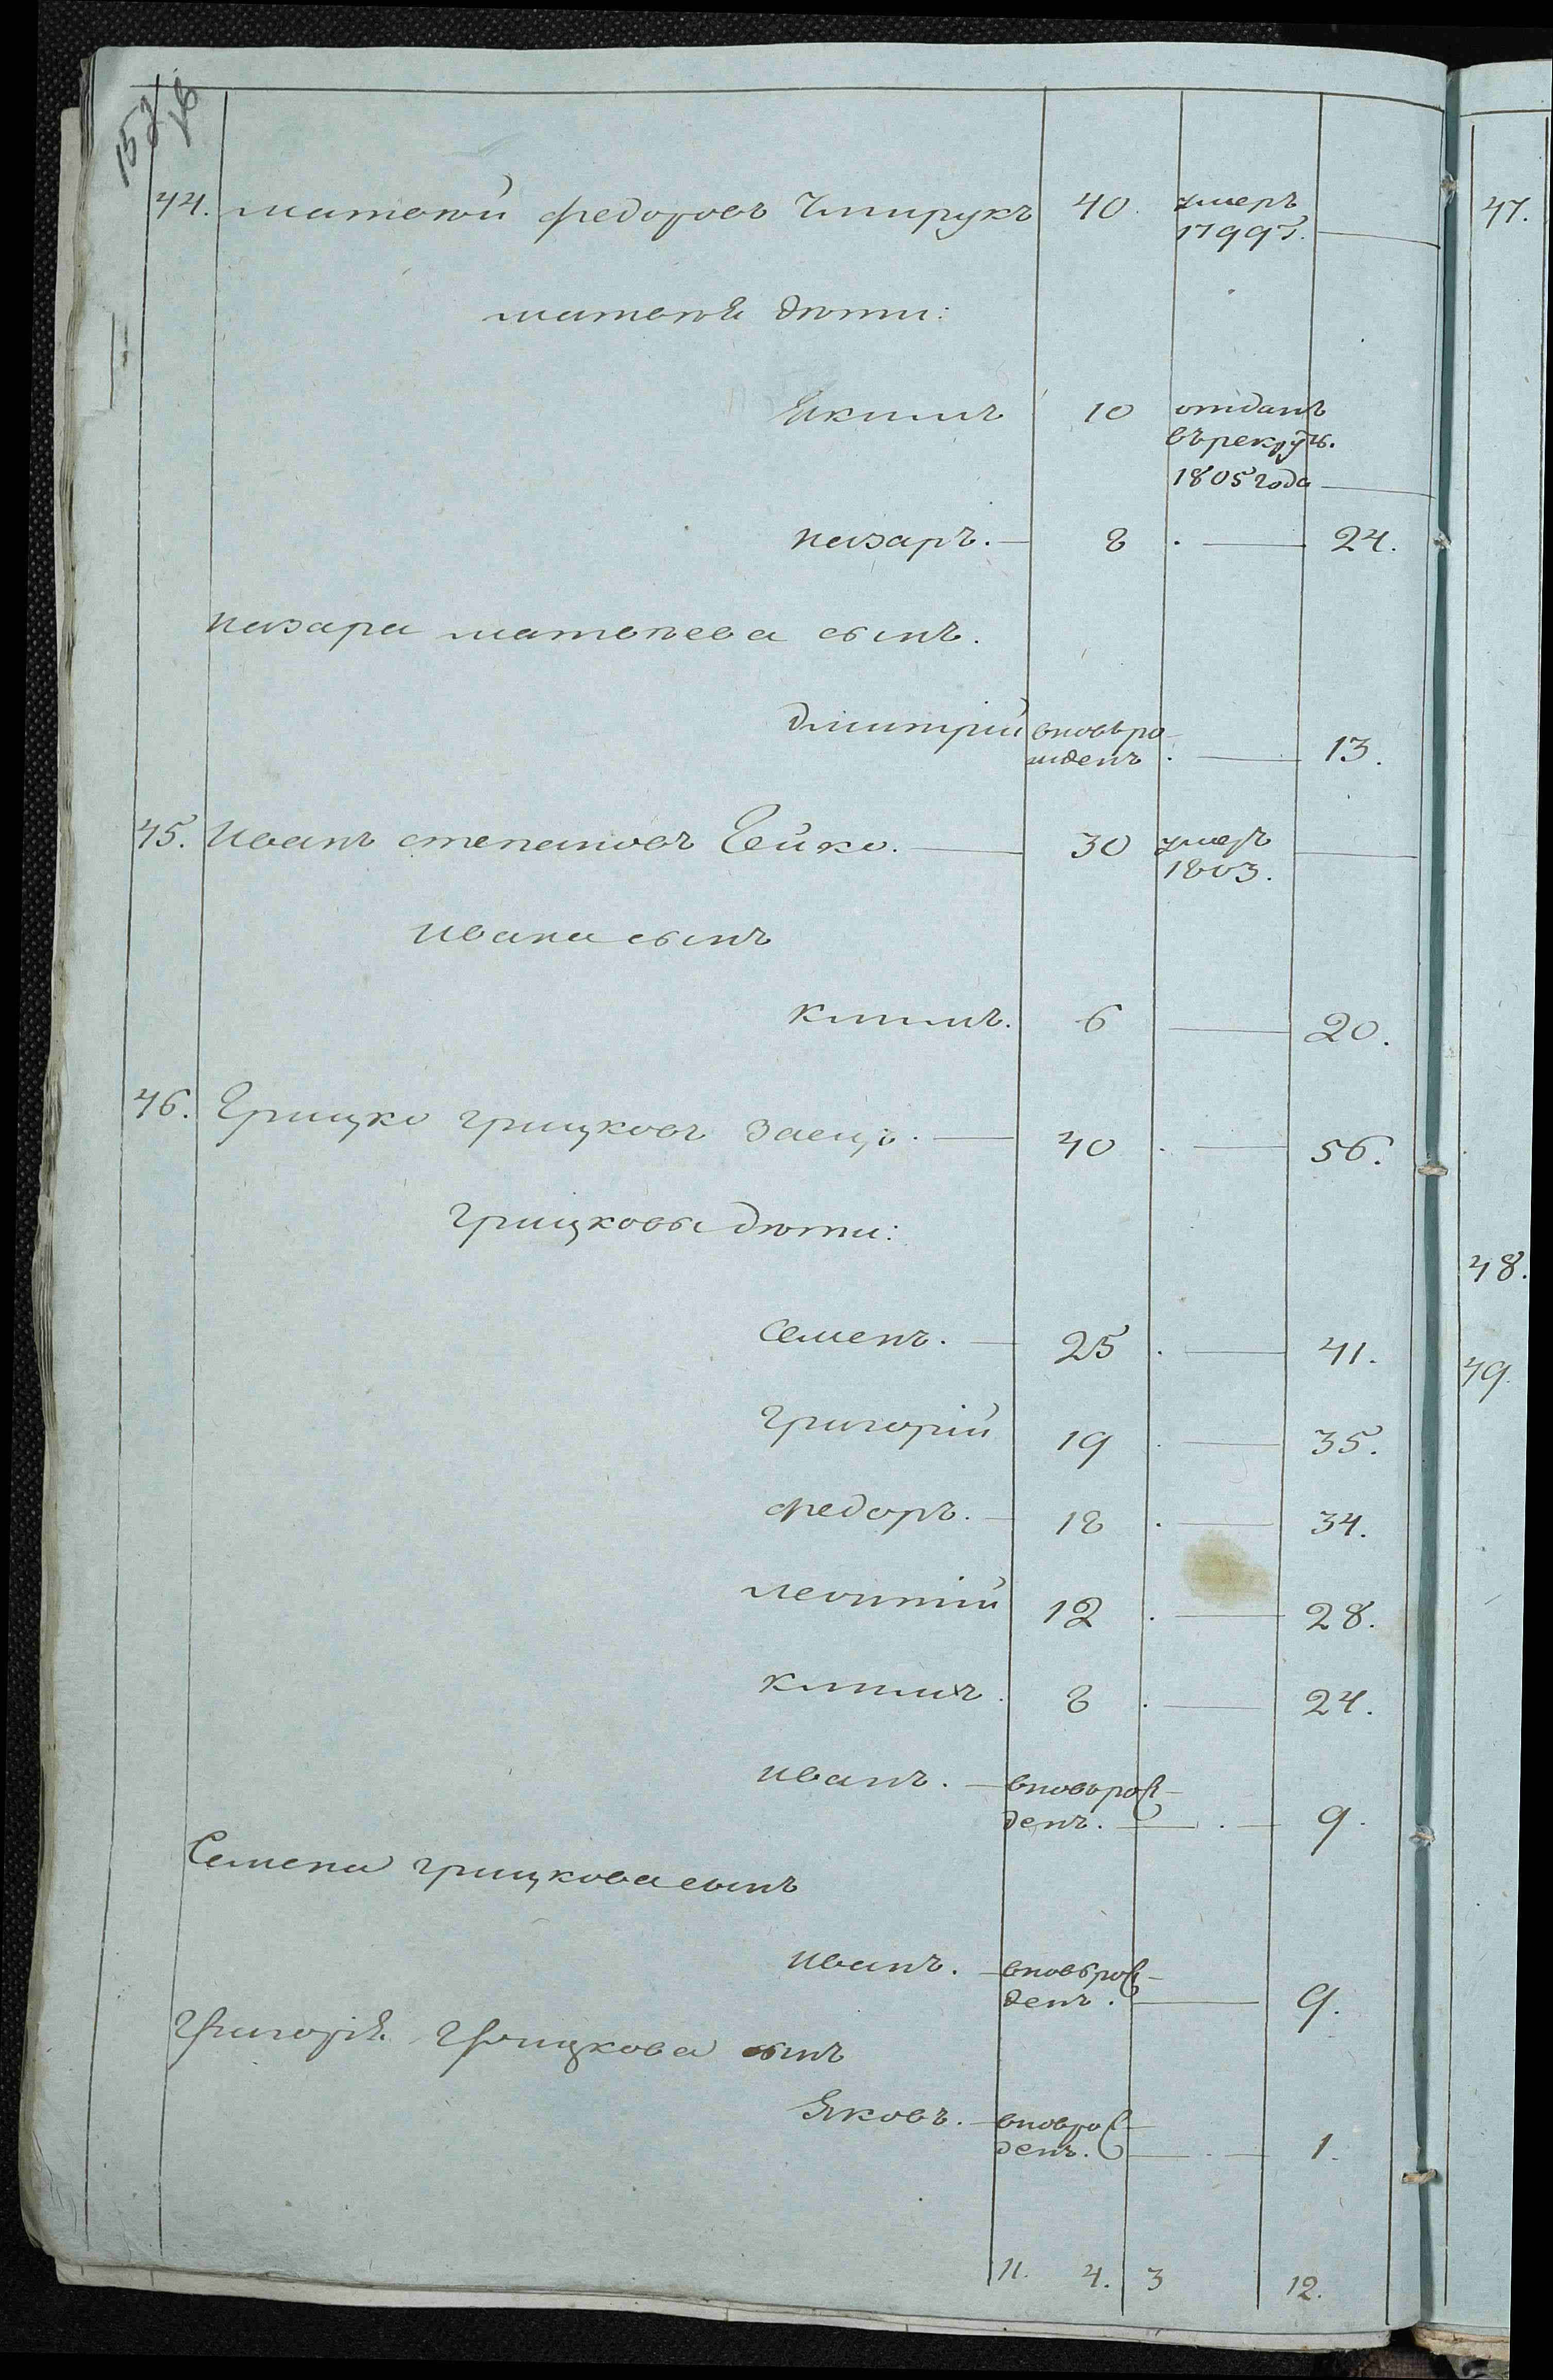 44. матвѣй федоровъ Чмирукъ 40. умеръ 1799г.
матвѣя дѣти:
Якимъ 10 отданъ
въ рекруты.
1805 года
назаръ. 8 . 24.
назара матвѣева сынъ.
дмитрій вновь ро-
жденъ . 13.
45. Иванъ степановъ Гейко. 30 умеръ
1803.
ивана сынъ
климъ. 6 20.
46. Грицко грицковъ заецъ. 40 . 56.
грицковы дѣти:
семенъ. 25 . 41.
григорій 19 . 35.
федоръ. 18 . 34.
леонтій 12 . 28.
климъ. 8 . 24.
иванъ. вновь рож-
денъ. 9.
Семена грицкова сынъ
иванъ. вновь рож-
денъ. 9.
григорія грицкова сынъ
Яковъ. вновь рож-
денъ. 1.
11. 4. 3 12.
47.
48.
49.